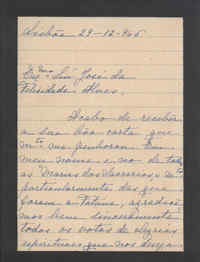 Lisboa 29-12-965
Exmo Snr José da
Felicidade Alves.
Acabo de receber
a sua bôa carta que
mto me penhorou. Em
meu nome e no de todas
as Marias dos Sacrários, e mto
particularmente das que
foram a Fátima, agradeço
mos bem sinceramente
todos os votos de alegrias
espirituais que nos deseja